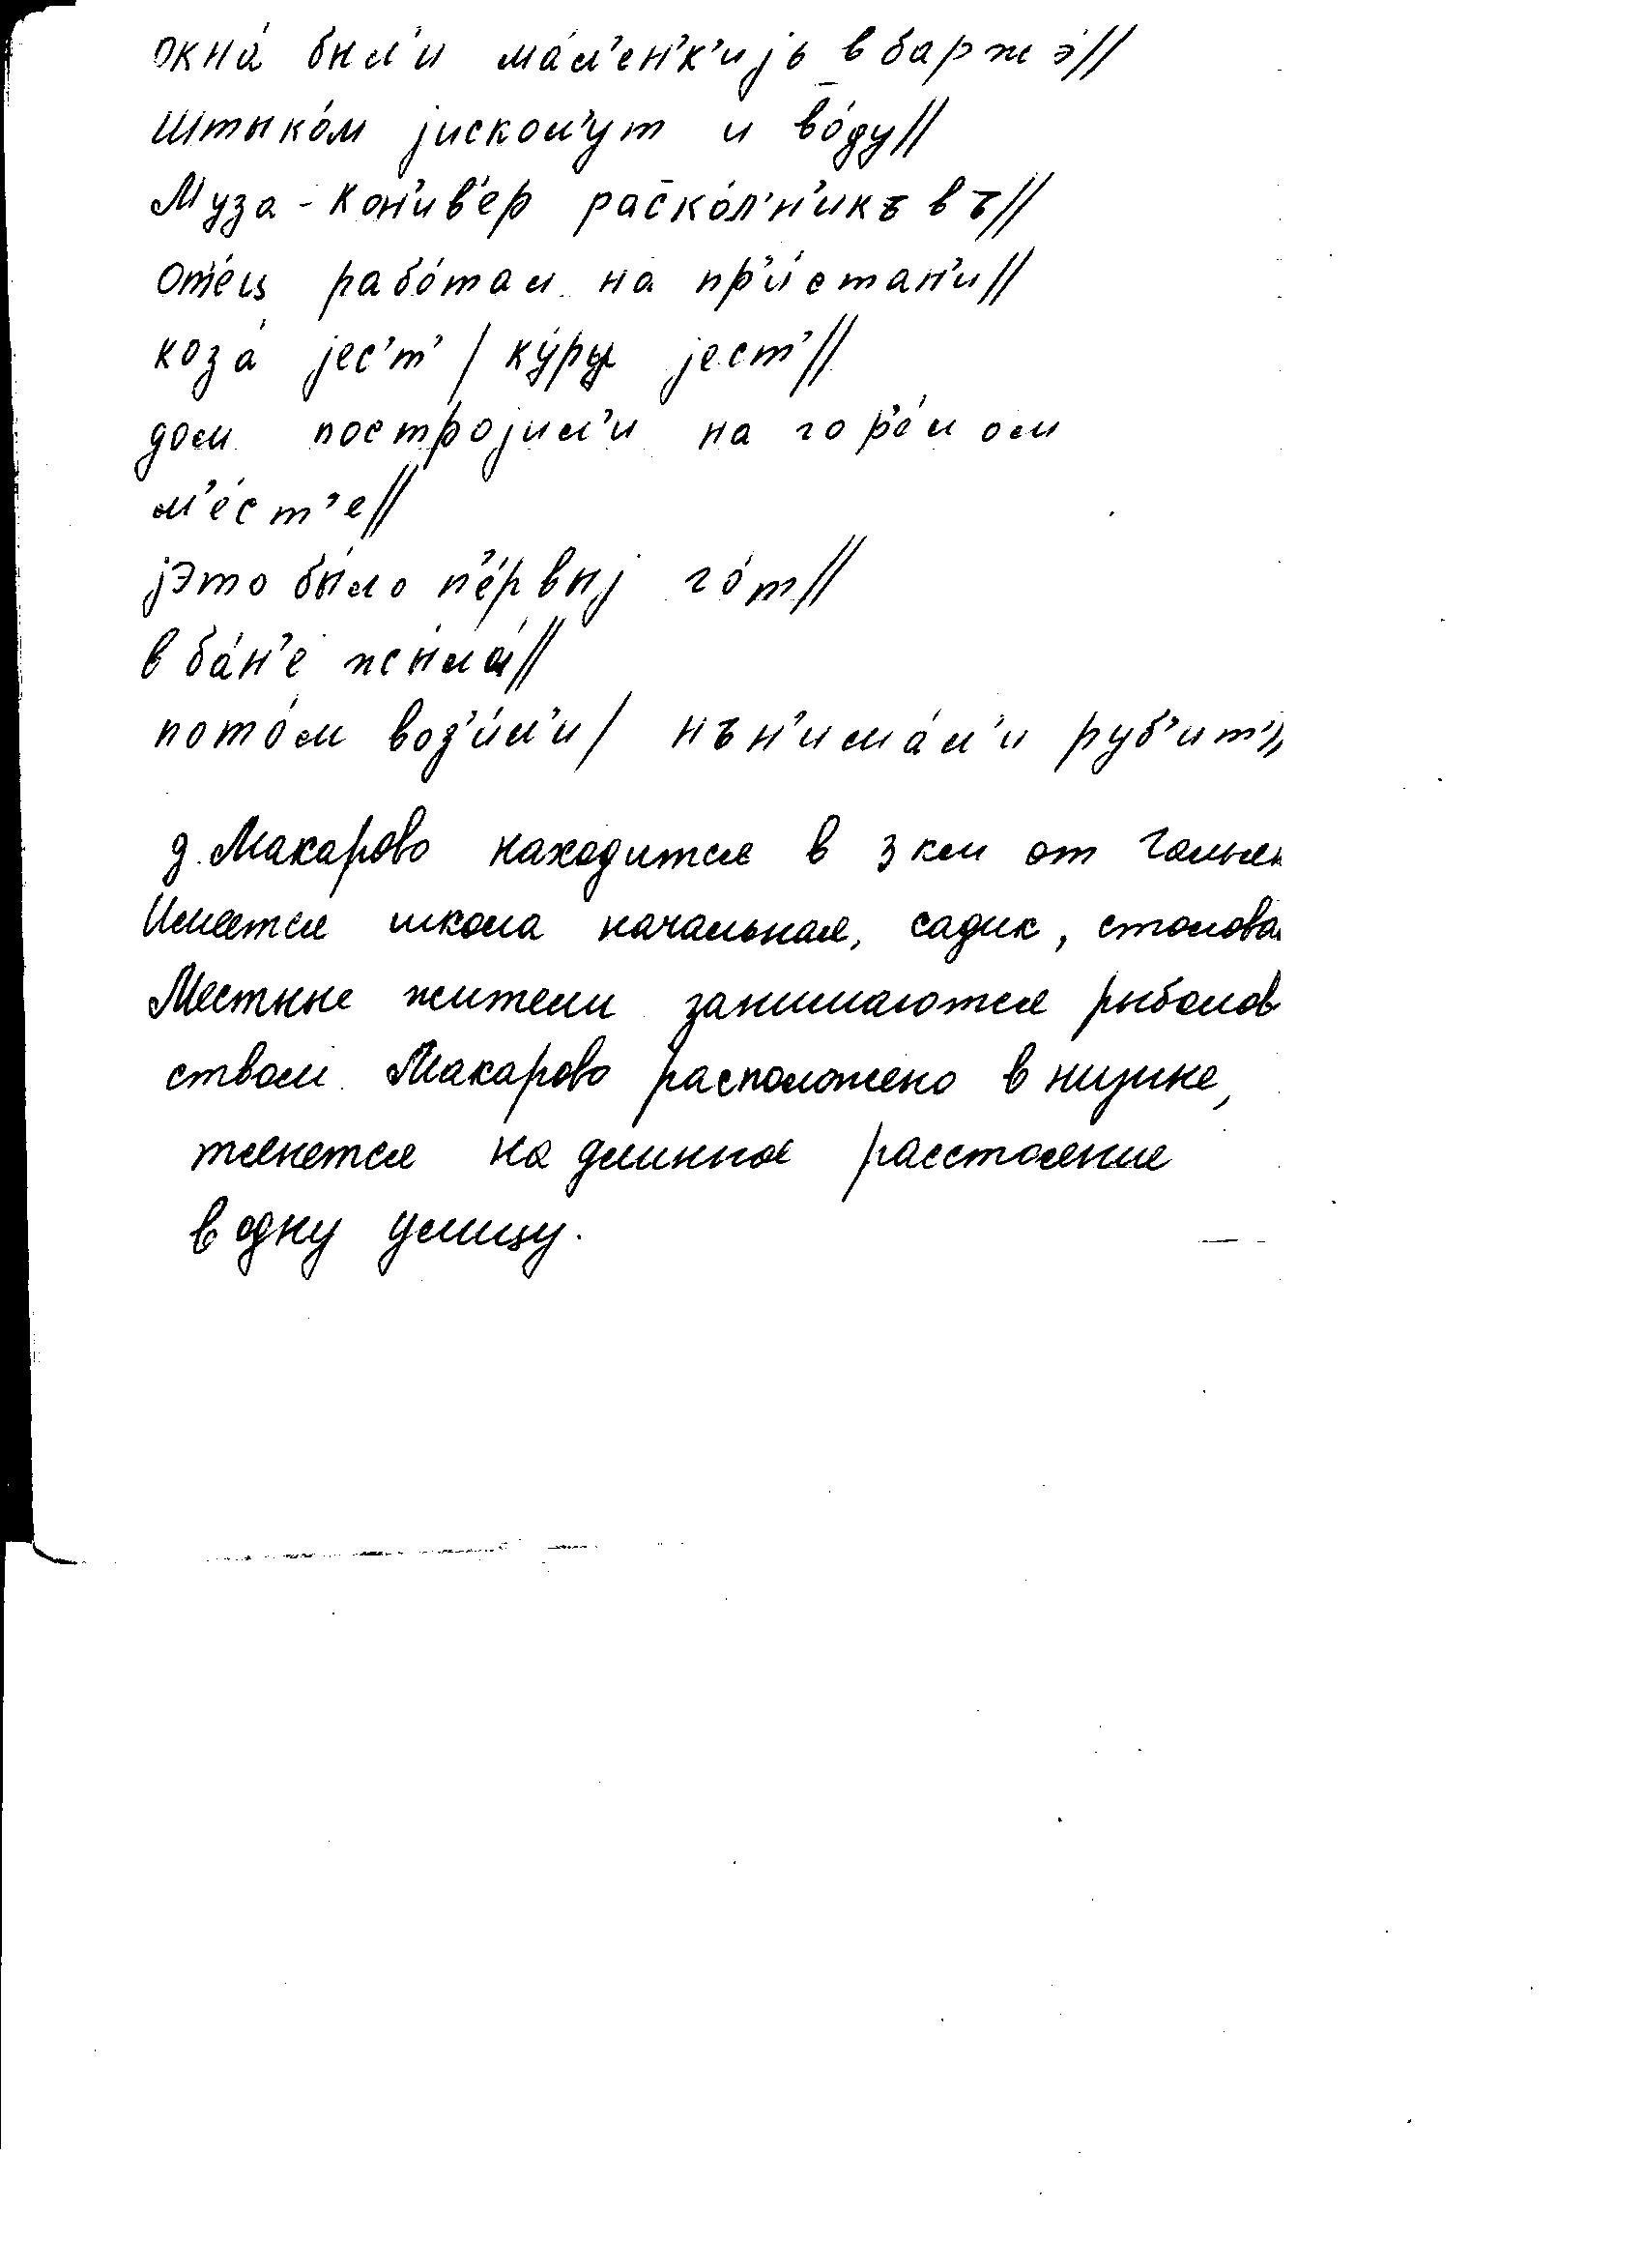 окна́ был'и ма́л'ен'к'иjь в баржэ́//
штыко́м jискол'ут и во́ду//
Муза - кон'ив'ер раско́л'н'икъвъ//
от'е́ц рабо́тал на пр'и́стан'и//
коза́ jес'т' / ку́ры jест'//
дом построjил'и на гор'е́лом
м'е́ст'е//
jэто бы́ло п'е́рвыj го́т//
в ба́н'е жыла́//
пото́м воз'и́л'и / нън'има́л'и руб'ит'//
д. Макарово находится в 3 км от
Имеется школа начальная, садик, столова
Местные жители занимаются рыболов
ством. Макарово расположено в низине,
тянется на длинное расстояние
в одну улицу.